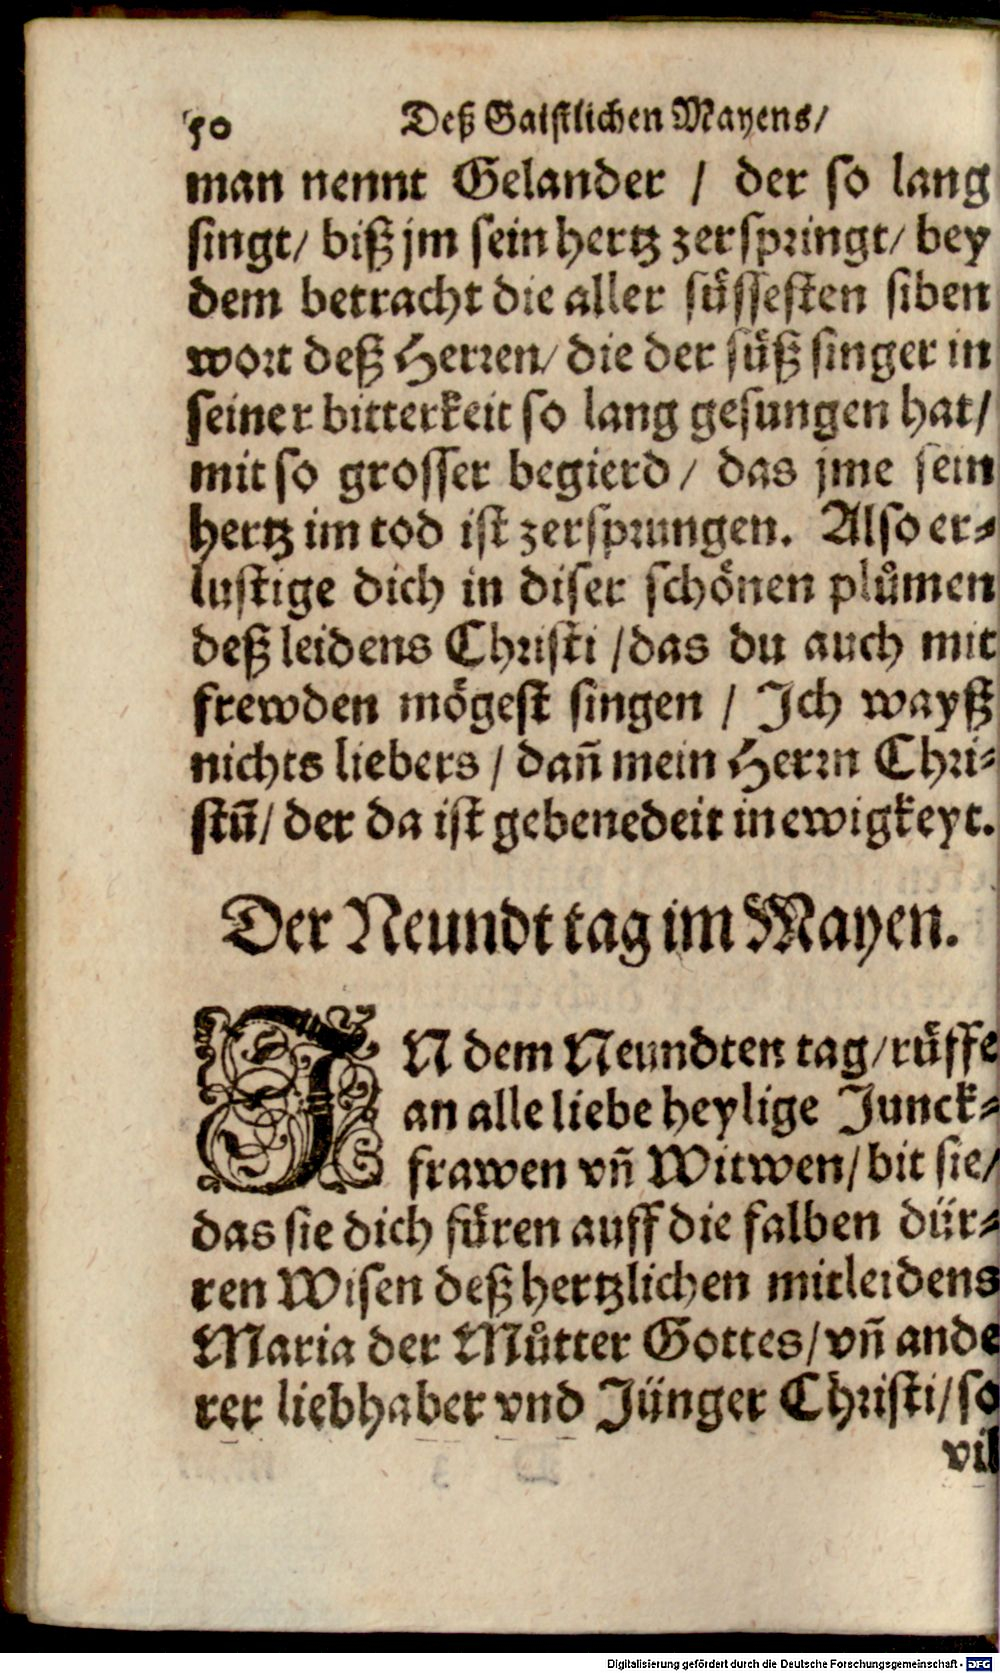 50 Deß Gaistlichen Mayens/
man nennt Gelander / der so lang
singt/ biß jm sein hertz zerspringt/ bey
dem betracht die aller süssesten siben
wort deß Herren/ die der süß singer in
seiner bitterkeit so lang gesungen hat/
mit so grosser begierd / das jme sein
hertz im tod ist zersprungen. Also er-
lustige dich in diser schönen plůmen
deß leidens Christi / das du auch mit
frewden mögest singen / Ich wayß
nichts liebers / dañ mein Herrn Chri-
stū/ der da ist gebenedeit in ewigkeyt.
Der Neundt tag im Mayen.
IN dem Neundten tag/ rüffe
an alle liebe heylige Junck-
frawen vñ Witwen/ bit sie/
das sie dich füren auff die falben dür-
ren Wisen deß hertzlichen mitleidens
Maria der Můtter Gottes/ vñ ande
rer liebhaber vnd Jünger Christi/ so
vil
Digitalisierung gefördert durch die Deutsche Forschungsgemeinschaft - DFG